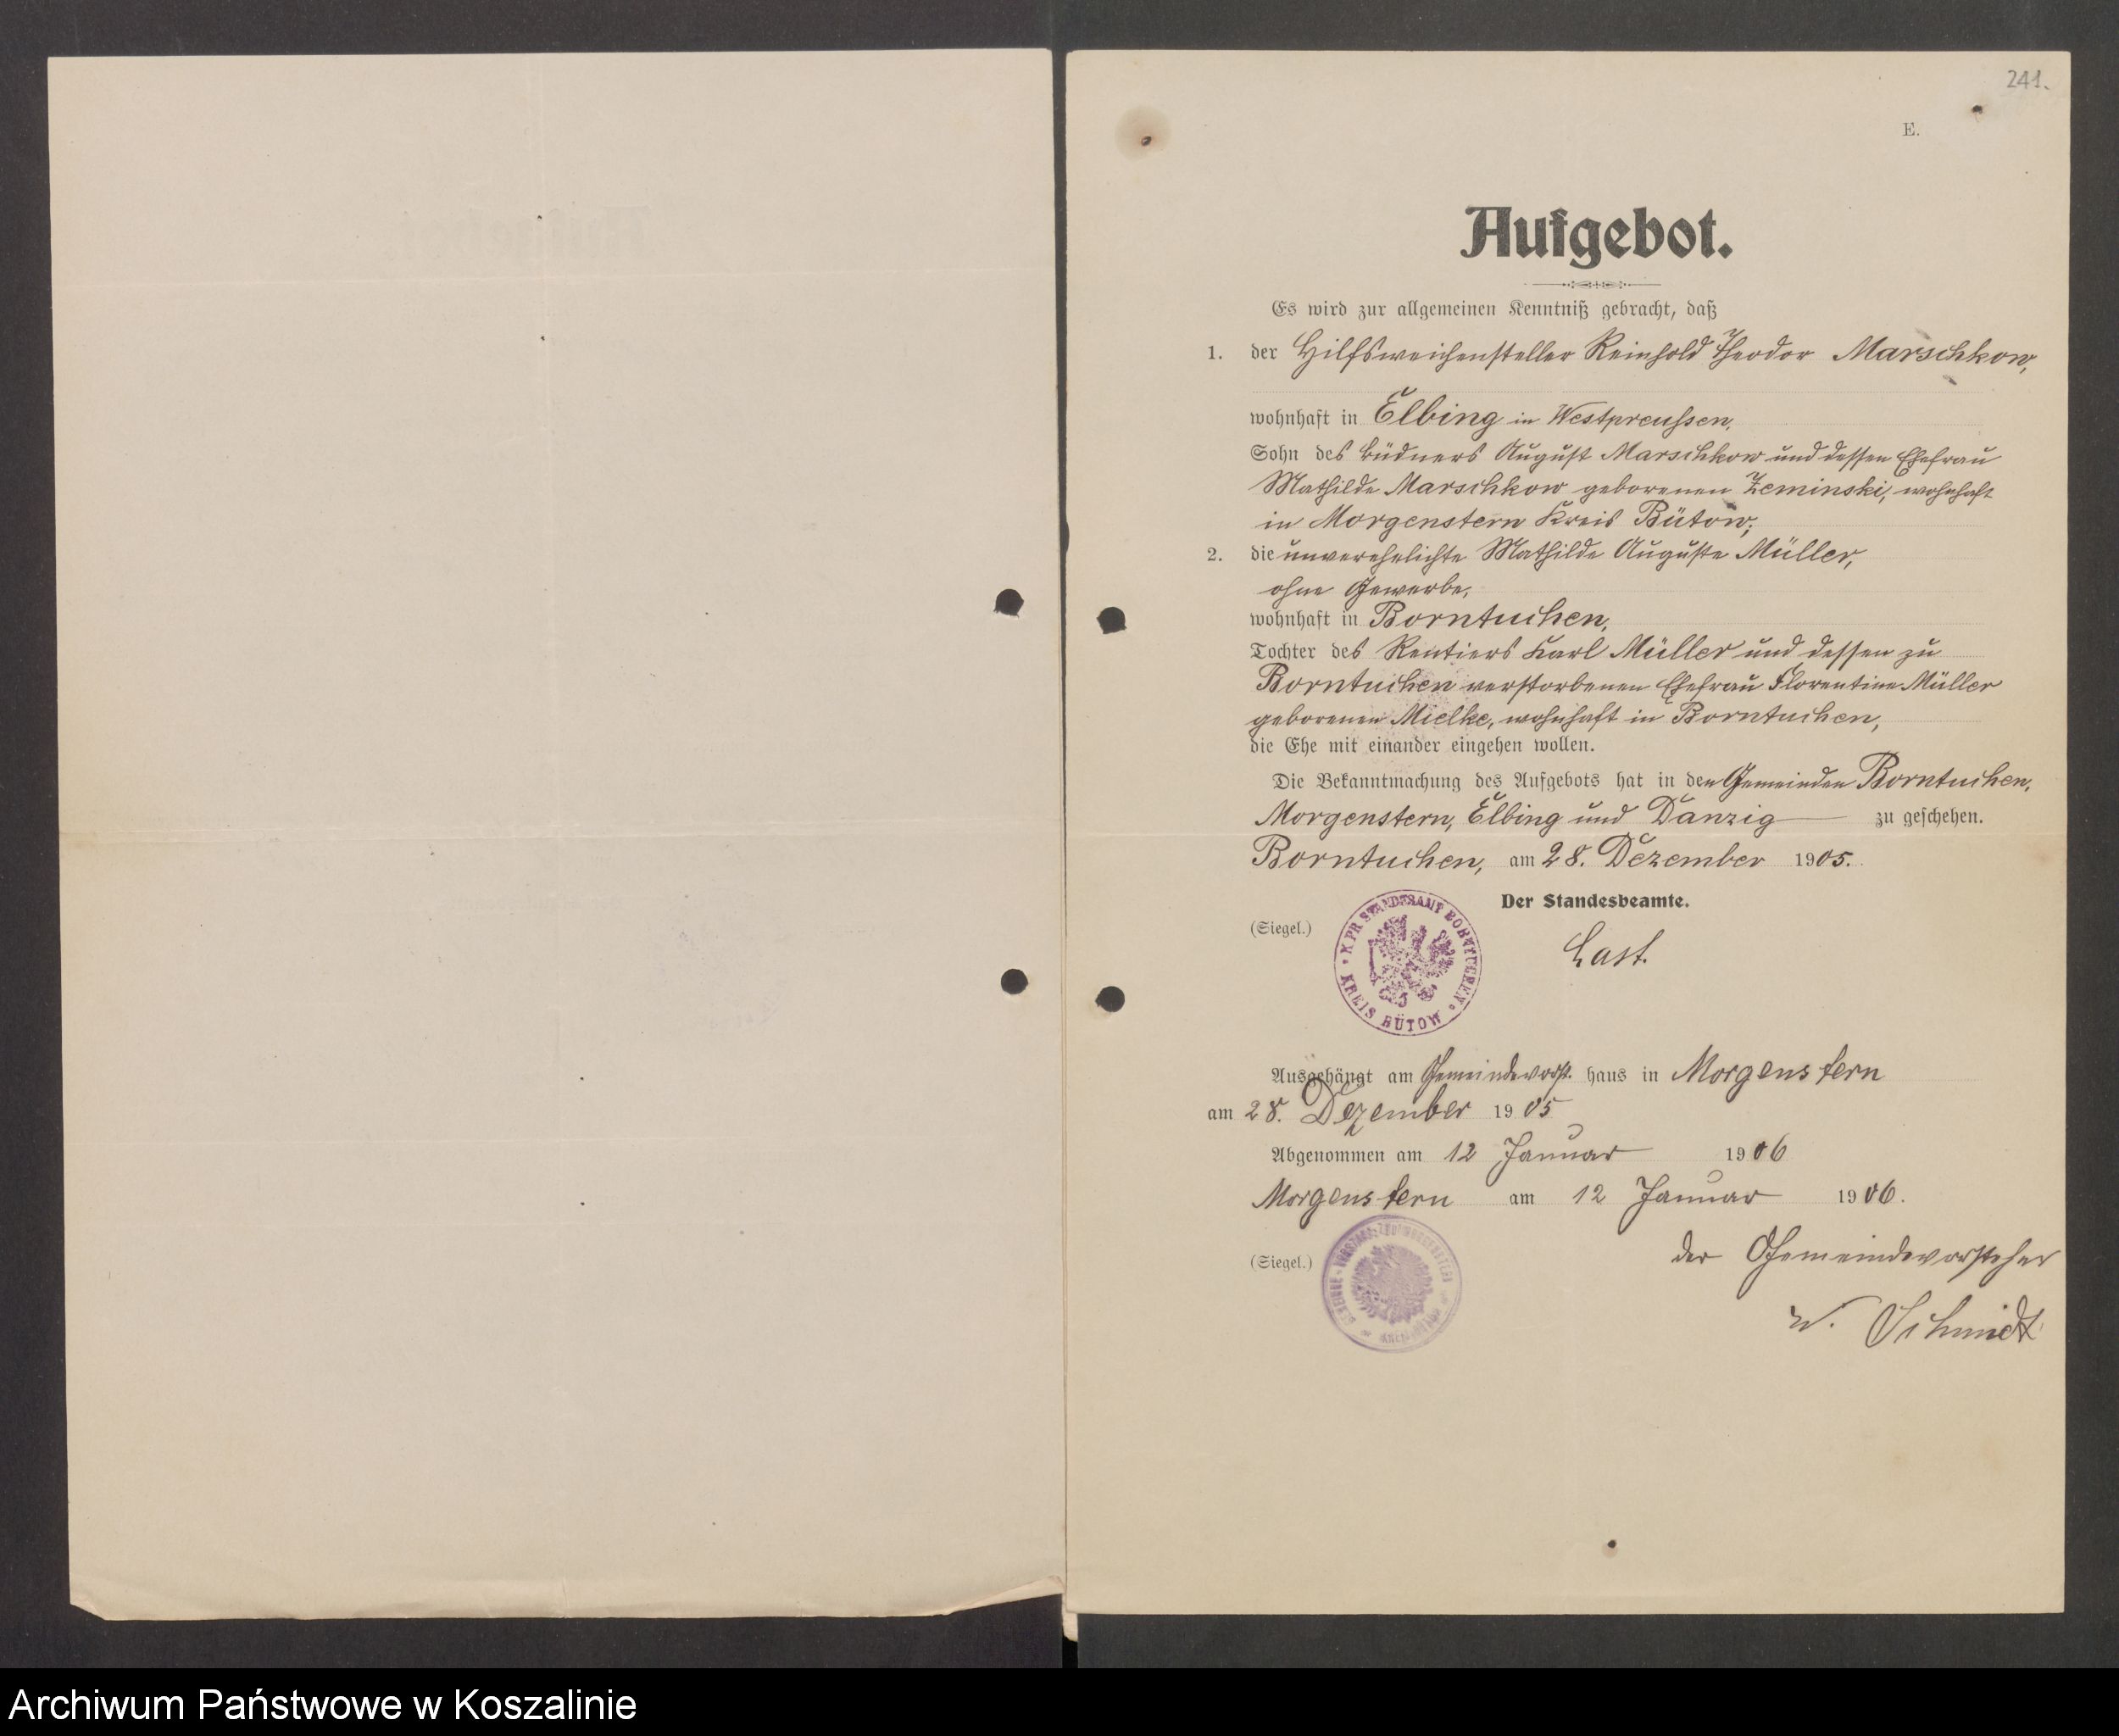 241.
E.
Aufgebot.
Es wird zur allgemeinen Kenntniß gebracht, daß
1. der Hilfsweichensteller Reinhold Theodor Marschkow,
wohnhaft in Elbing in Westpreussen,
Sohn des Büdners August Marschkow und dessen Ehefrau
Mathilde Marschkow geborenen Zeminski, wohnhaft
in Morgenstern Kreis Bütow;
2. die unverehelichte Mathilde Auguste Müller,
ohne Gewerbe,
wohnhaft in Borntuchen,
Tochter des Rentiers Karl Müller und dessen zu
Borntuchen verstorbenen Ehefrau Florentine Müller
geborenen Mielke, wohnhaft in Borntuchen,
die Ehe mit einander eingehen wollen.
Die Bekanntmachung des Aufgebots hat in den Gemeinden Borntuchen,
Morgenstern, Elbing und Danzig zu geschehen.
Borntuchen, am 28. Dezember 1905.
Der Standesbeamte.
(Siegel.)
K. PR. STANDESAMT BORNTUCHEN
KREIS BÜTOW
Last.
Ausgehängt am Gemeindevorst. haus in Morgenstern
am 28. Dezember 1905
Abgenommen am 12 Januar 1906
Morgenstern am 12 Januar 1906.
(Siegel.)
der Gemeindevorsteher
W. Schmidt
Archiwum Państwowe w Koszalinie